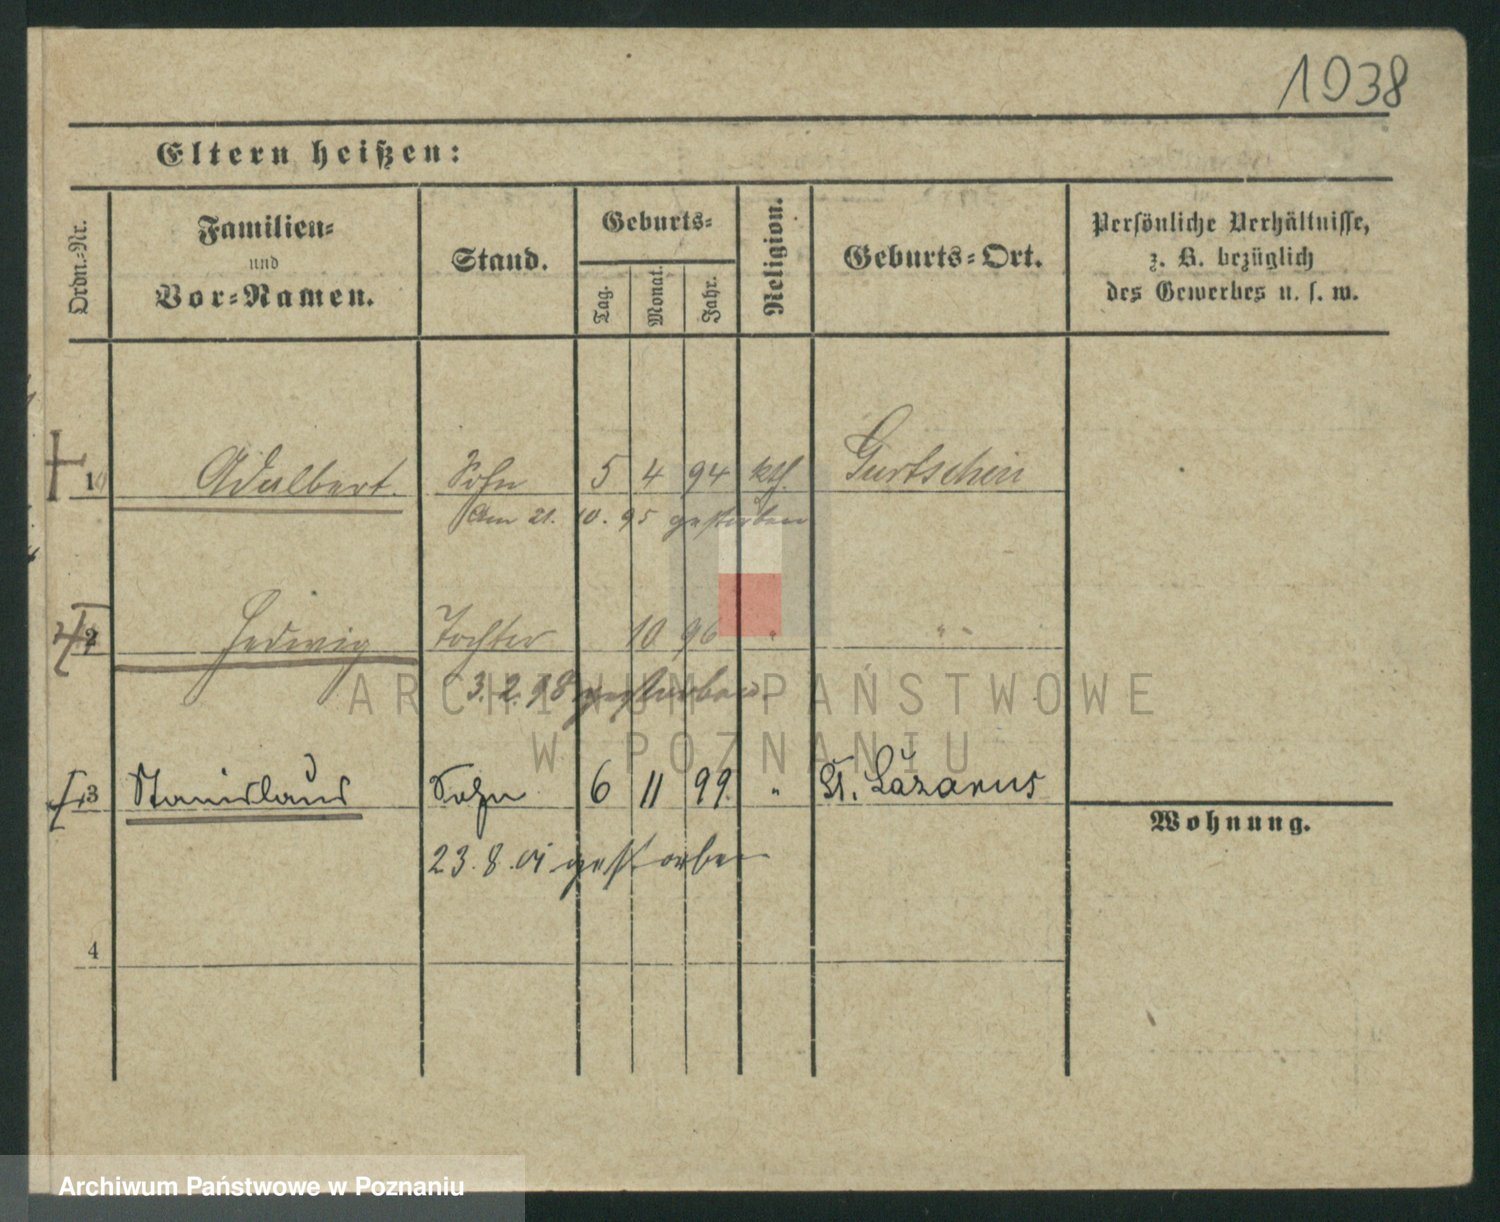 1038
Eltern heißen:
Ordn.-Nr.
Familien-
und
Vor-Namen.
Stand.
Geburts-
Tag.
Monat.
Jahr.
Religion.
Geburts-Ort.
Persönliche Verhältnisse,
z. B. bezüglich
des Gewerbes u. s. w.
1 Adalbert. Sohn 5 4 94 kth. Gurtschin
Am 21. 10. 95 gestorben
2 Hedwig Tochter 10 96 " " "
3. 2. 98 gestorben.
ARCHIWUM PAŃSTWOWE
W POZNANIU
3 Stanislaus Sohn 6 11 99. " St. Lazarus
Wohnung.
23. 8. 01 gestorben
4
Archiwum Państwowe w Poznaniu